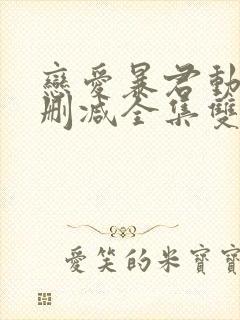 戀愛暴君動
刪減全集雙
愛笑的米寶寶